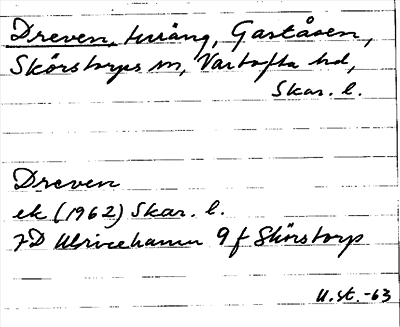 Dreven, terräng, Gaståsen,
Skörstorps sn, Vartofta hd,
Skar. l.
Dreven
ek (1962) Skar. l.
7D Ulricehamn 9f Skörstorp
U.st.-63